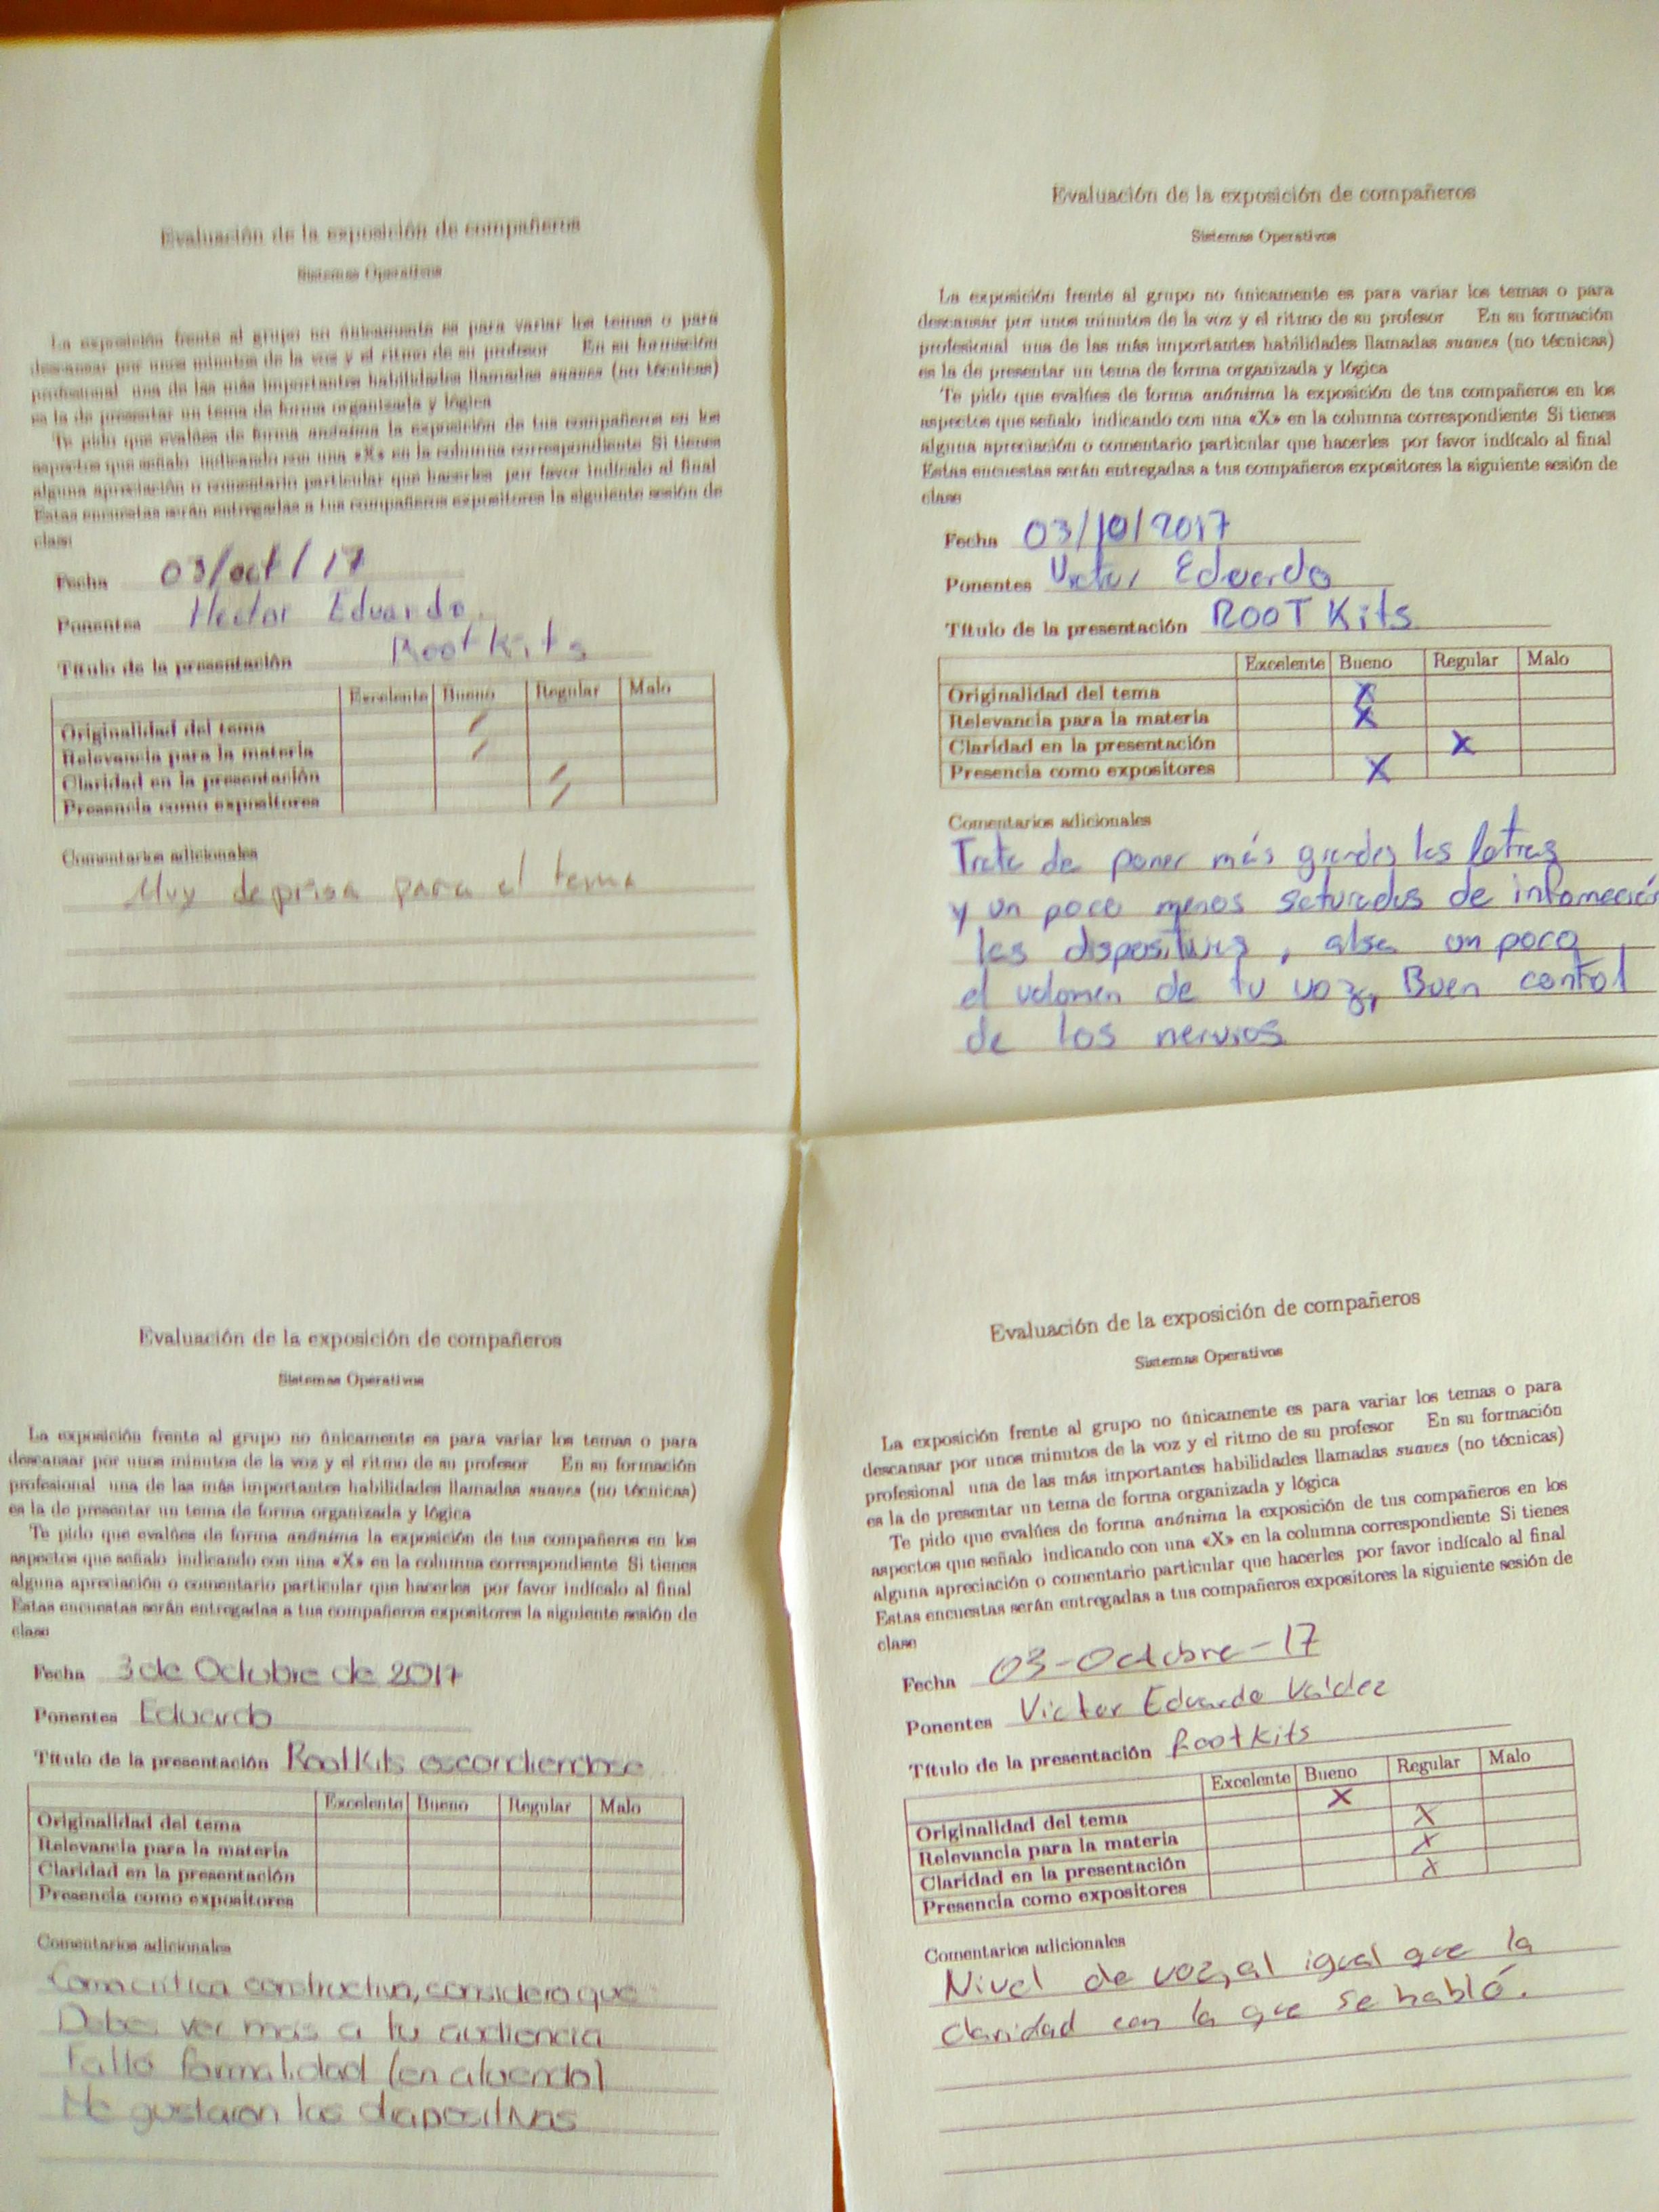 Evaluación de la exposición de compañeros
Sistemas Operativos
La exposición frente al grupo no únicamente es para variar los temas o para
descansar por unos minutos de la voz y el ritmo de su profesor En su formación
profesional una de las más importantes habilidades llamadas suaves (no técnicas)
es la de presentar un tema de forma organizada y lógica
Te pido que evalúes de forma anónima la exposición de tus compañeros en los
aspectos que señalo indicando con una «X» en la columna correspondiente Si tienes
alguna apreciación o comentario particular que hacerles por favor indícalo al final
Estas encuestas serán entregadas a tus compañeros expositores la siguiente sesión de
clase
Fecha 03/oct/17
Ponentes Hector Eduardo.
Título de la presentación Rootkits
Excelente Bueno Regular Malo
Originalidad del tema /
Relevancia para la materia /
Claridad en la presentación /
Presencia como expositores /
Comentarios adicionales
Muy deprisa para el tema
Evaluación de la exposición de compañeros
Sistemas Operativos
La exposición frente al grupo no únicamente es para variar los temas o para
descansar por unos minutos de la voz y el ritmo de su profesor En su formación
profesional una de las más importantes habilidades llamadas suaves (no técnicas)
es la de presentar un tema de forma organizada y lógica
Te pido que evalúes de forma anónima la exposición de tus compañeros en los
aspectos que señalo indicando con una «X» en la columna correspondiente Si tienes
alguna apreciación o comentario particular que hacerles por favor indícalo al final
Estas encuestas serán entregadas a tus compañeros expositores la siguiente sesión de
clase
Fecha 03/10/2017
Ponentes Victor Eduardo
Título de la presentación ROOT Kits
Excelente Bueno Regular Malo
Originalidad del tema X
Relevancia para la materia X
Claridad en la presentación X
Presencia como expositores X
Comentarios adicionales
Trata de poner más grandes las letras
y un poco menos saturadas de infomació
las dispositivas, alsa un poco
el volumen de tu voz, Buen control
de los nervios
Evaluación de la exposición de compañeros
Sistemas Operativos
La exposición frente al grupo no únicamente es para variar los temas o para
descansar por unos minutos de la voz y el ritmo de su profesor En su formación
profesional una de las más importantes habilidades llamadas suaves (no técnicas)
es la de presentar un tema de forma organizada y lógica
Te pido que evalúes de forma anónima la exposición de tus compañeros en los
aspectos que señalo indicando con una «X» en la columna correspondiente Si tienes
alguna apreciación o comentario particular que hacerles por favor indícalo al final
Estas encuestas serán entregadas a tus compañeros expositores la siguiente sesión de
clase
Fecha 3 de Octubre de 2017
Ponentes Eduardo
Título de la presentación RootKits escondiendose
Excelente Bueno Regular Malo
Originalidad del tema
Relevancia para la materia
Claridad en la presentación
Presencia como expositores
Comentarios adicionales
Como critica constructiva, considero que
Debes ver más a tu audiencia
Faltó formalidad (en atuendo)
Me gustaron las diapositivas
Evaluación de la exposición de compañeros
Sistemas Operativos
La exposición frente al grupo no únicamente es para variar los temas o para
descansar por unos minutos de la voz y el ritmo de su profesor En su formación
profesional una de las más importantes habilidades llamadas suaves (no técnicas)
es la de presentar un tema de forma organizada y lógica
Te pido que evalúes de forma anónima la exposición de tus compañeros en los
aspectos que señalo indicando con una «X» en la columna correspondiente Si tienes
alguna apreciación o comentario particular que hacerles por favor indícalo al final
Estas encuestas serán entregadas a tus compañeros expositores la siguiente sesión de
clase
Fecha 03-Octubre-17
Ponentes Victor Eduardo Valdez
Título de la presentación Rootkits
Excelente Bueno Regular Malo
Originalidad del tema X
Relevancia para la materia X
Claridad en la presentación X
Presencia como expositores X
Comentarios adicionales
Nivel de voz, al igual que la
claridad con la que se habló.